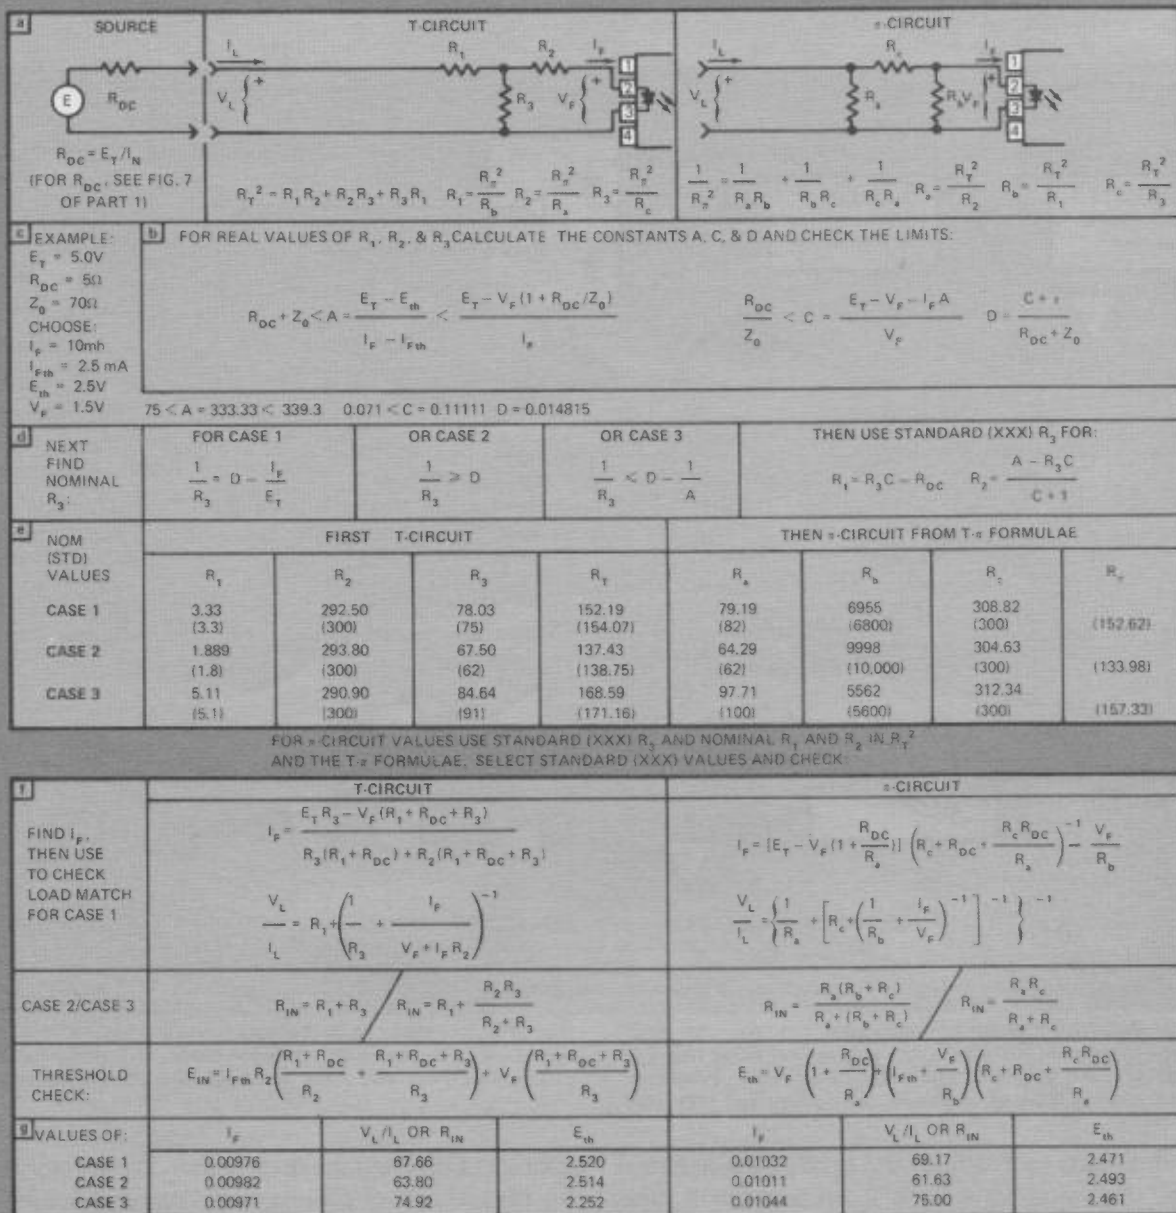 a SOURCE
E
R_DC
R_DC = E_T/I_N
(FOR R_DC, SEE FIG. 7
OF PART 1)
T-CIRCUIT
I_L R_1 R_2 I_F
V_L { + R_3 V_F { +
1
2
3
4
R_T² = R_1 R_2 + R_2 R_3 + R_3 R_1 R_1 = R_π²/R_b R_2 = R_π²/R_a R_3 = R_π²/R_c
π-CIRCUIT
I_L R_c I_F
V_L { + R_a R_b V_F { +
1
2
3
4
1/R_π² = 1/(R_a R_b) + 1/(R_b R_c) + 1/(R_c R_a) R_a = R_T²/R_2 R_b = R_T²/R_1 R_c = R_T²/R_3
c EXAMPLE:
E_T = 5.0V
R_DC = 5Ω
Z_0 = 70Ω
CHOOSE:
I_F = 10mh
I_Fth = 2.5 mA
E_th = 2.5V
V_F = 1.5V
b FOR REAL VALUES OF R_1, R_2, & R_3 CALCULATE THE CONSTANTS A, C, & D AND CHECK THE LIMITS:
R_DC + Z_0 < A = (E_T − E_th)/(I_F − I_Fth) < (E_T − V_F (1 + R_DC/Z_0))/I_F
R_DC/Z_0 < C = (E_T − V_F − I_F A)/V_F D = (C + 1)/(R_DC + Z_0)
75 < A = 333.33 < 339.3 0.071 < C = 0.11111 D = 0.014815
d NEXT
FIND
NOMINAL
R_3:
FOR CASE 1
1/R_3 = D − I_F/E_T
OR CASE 2
1/R_3 ⩾ D
OR CASE 3
1/R_3 < D − 1/A
THEN USE STANDARD (XXX) R_3 FOR:
R_1 = R_3 C − R_DC R_2 = (A − R_3 C)/(C + 1)
e NOM
(STD)
VALUES
FIRST T-CIRCUIT THEN π-CIRCUIT FROM T-π FORMULAE
R_1 R_2 R_3 R_T R_a R_b R_c R_π
CASE 1 3.33 292.50 78.03 152.19 79.19 6955 308.82
(3.3) (300) (75) (154.07) (82) (6800) (300) (152.62)
CASE 2 1.889 293.80 67.50 137.43 64.29 9998 304.63
(1.8) (300) (62) (138.75) (62) (10,000) (300) (133.98)
CASE 3 5.11 290.90 84.64 168.59 97.71 5562 312.34
(5.1) (300) (91) (171.16) (100) (5600) (300) (157.33)
FOR π-CIRCUIT VALUES USE STANDARD (XXX) R_3 AND NOMINAL R_1 AND R_2 IN R_T²
AND THE T-π FORMULAE, SELECT STANDARD (XXX) VALUES AND CHECK:
f T-CIRCUIT π-CIRCUIT
FIND I_F,
THEN USE
TO CHECK
LOAD MATCH
FOR CASE 1
I_F = (E_T R_3 − V_F (R_1 + R_DC + R_3))/(R_3(R_1 + R_DC) + R_2 (R_1 + R_DC + R_3))
V_L/I_L = R_1 + (1/R_3 + I_F/(V_F + I_F R_2))^−1
I_F = [E_T − V_F (1 + R_DC/R_a)] (R_c + R_DC + R_c R_DC/R_a)^−1 − V_F/R_b
V_L/I_L = {1/R_a + [R_c + (1/R_b + I_F/V_F)^−1]^−1}^−1
CASE 2/CASE 3
R_IN = R_1 + R_3 / R_IN = R_1 + R_2 R_3/(R_2 + R_3)
R_IN = R_a (R_b + R_c)/(R_a + (R_b + R_c)) / R_IN = R_a R_c/(R_a + R_c)
THRESHOLD
CHECK:
E_IN = I_Fth R_2 ((R_1 + R_DC)/R_2 + (R_1 + R_DC + R_3)/R_3) + V_F ((R_1 + R_DC + R_3)/R_3)
E_th = V_F (1 + R_DC/R_a) + (I_Fth + V_F/R_b) (R_c + R_DC + R_c R_DC/R_a)
g VALUES OF: I_F V_L/I_L OR R_IN E_th I_F V_L/I_L OR R_IN E_th
CASE 1 0.00976 67.66 2.520 0.01032 69.17 2.471
CASE 2 0.00982 63.80 2.514 0.01011 61.63 2.493
CASE 3 0.00971 74.92 2.252 0.01044 75.00 2.461